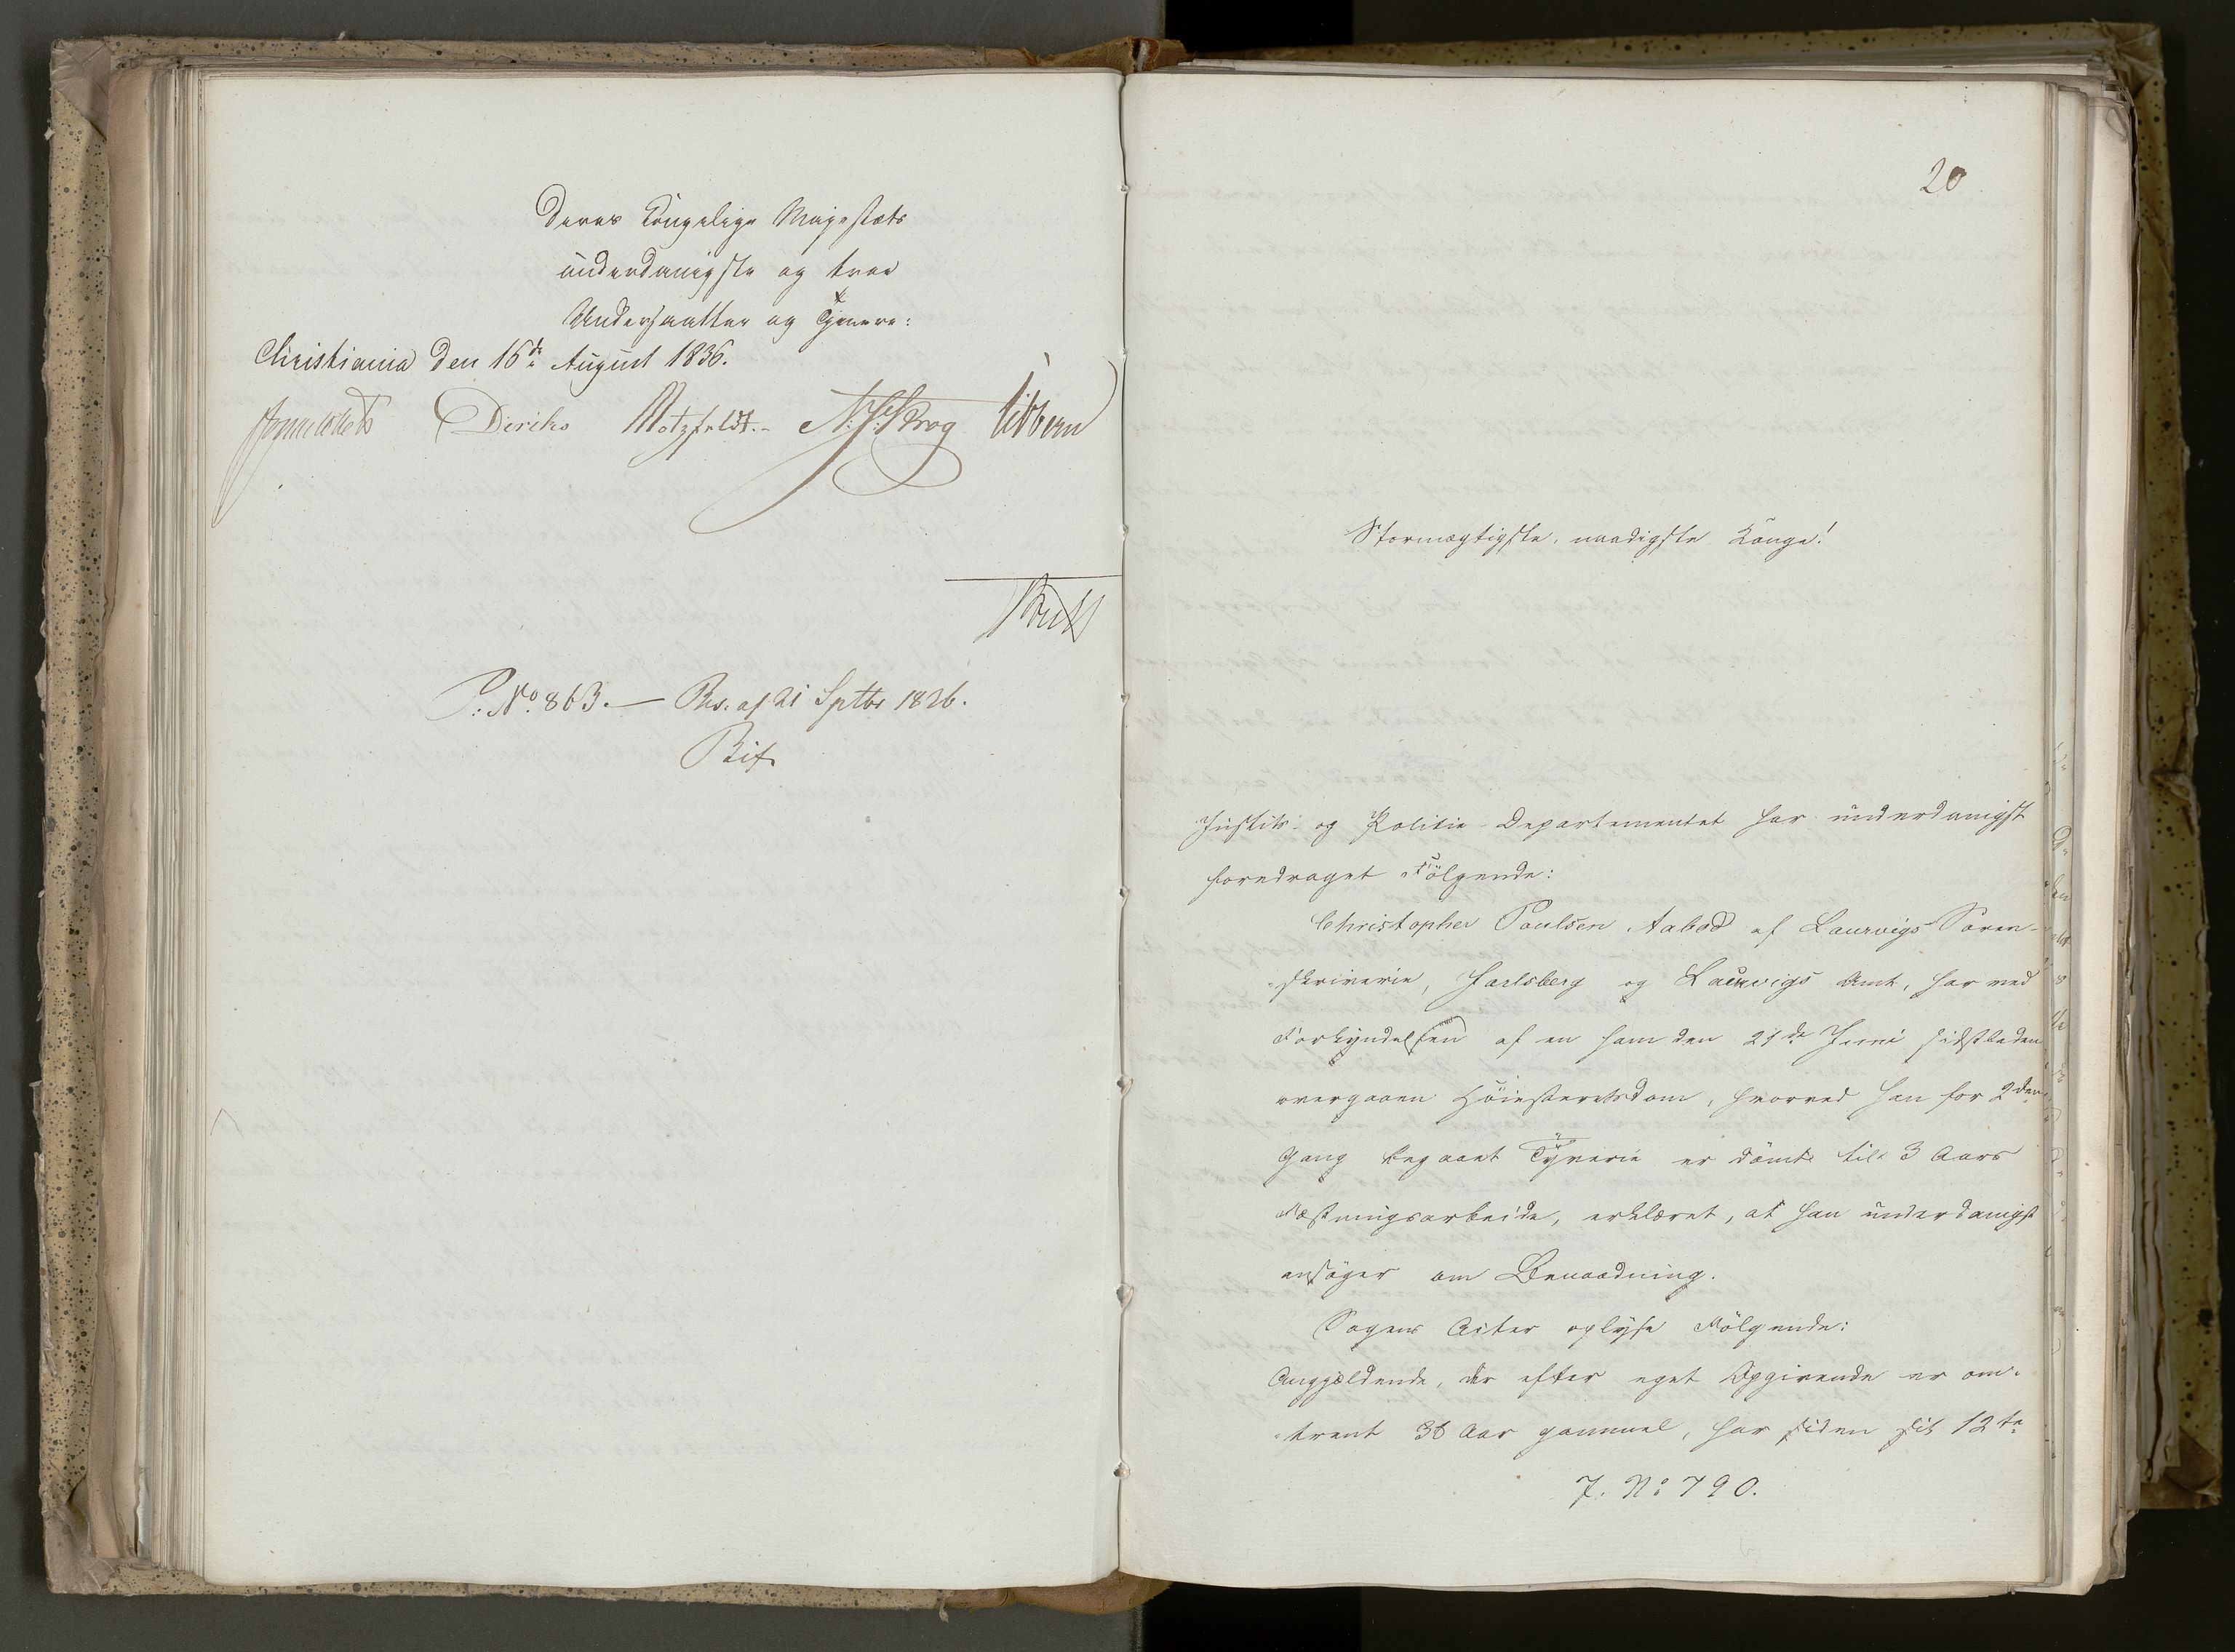 Deres Kongelige Majestæts
underdanigste og troe
Undersaatter og Tjenere:
Christiania den 16de August 1836.
Diriks Motzfeldt. N. J. Krog Sibbern
P: No 863. — Res. af 21 Sptbr 1836.
20
Stormægtigste, naadigste Konge!
Justits- og Politie-Departementet har underdanigst
foredraget Følgende:
Christopher Poulsen Aabød af Laurvigs Soren-
-skriverie, Jarlsberg og Laurvigs Amt, har ved
Forkyndelsen af en ham den 21de Juni sidstleden
overgaaen Höiesteretsdom, hvorved han for 2den
Gang begaaet Tyverie er dömt til 3 Aars
Fæstningsarbeide, erklæret, at han underdanigst
ansöger om Benaadning.
Sagens Acter oplyse Fölgende:
Angjældende, der efter eget Opgivende er om-
-trent 36 Aar gammel, har siden sit 12te
J. No 790.